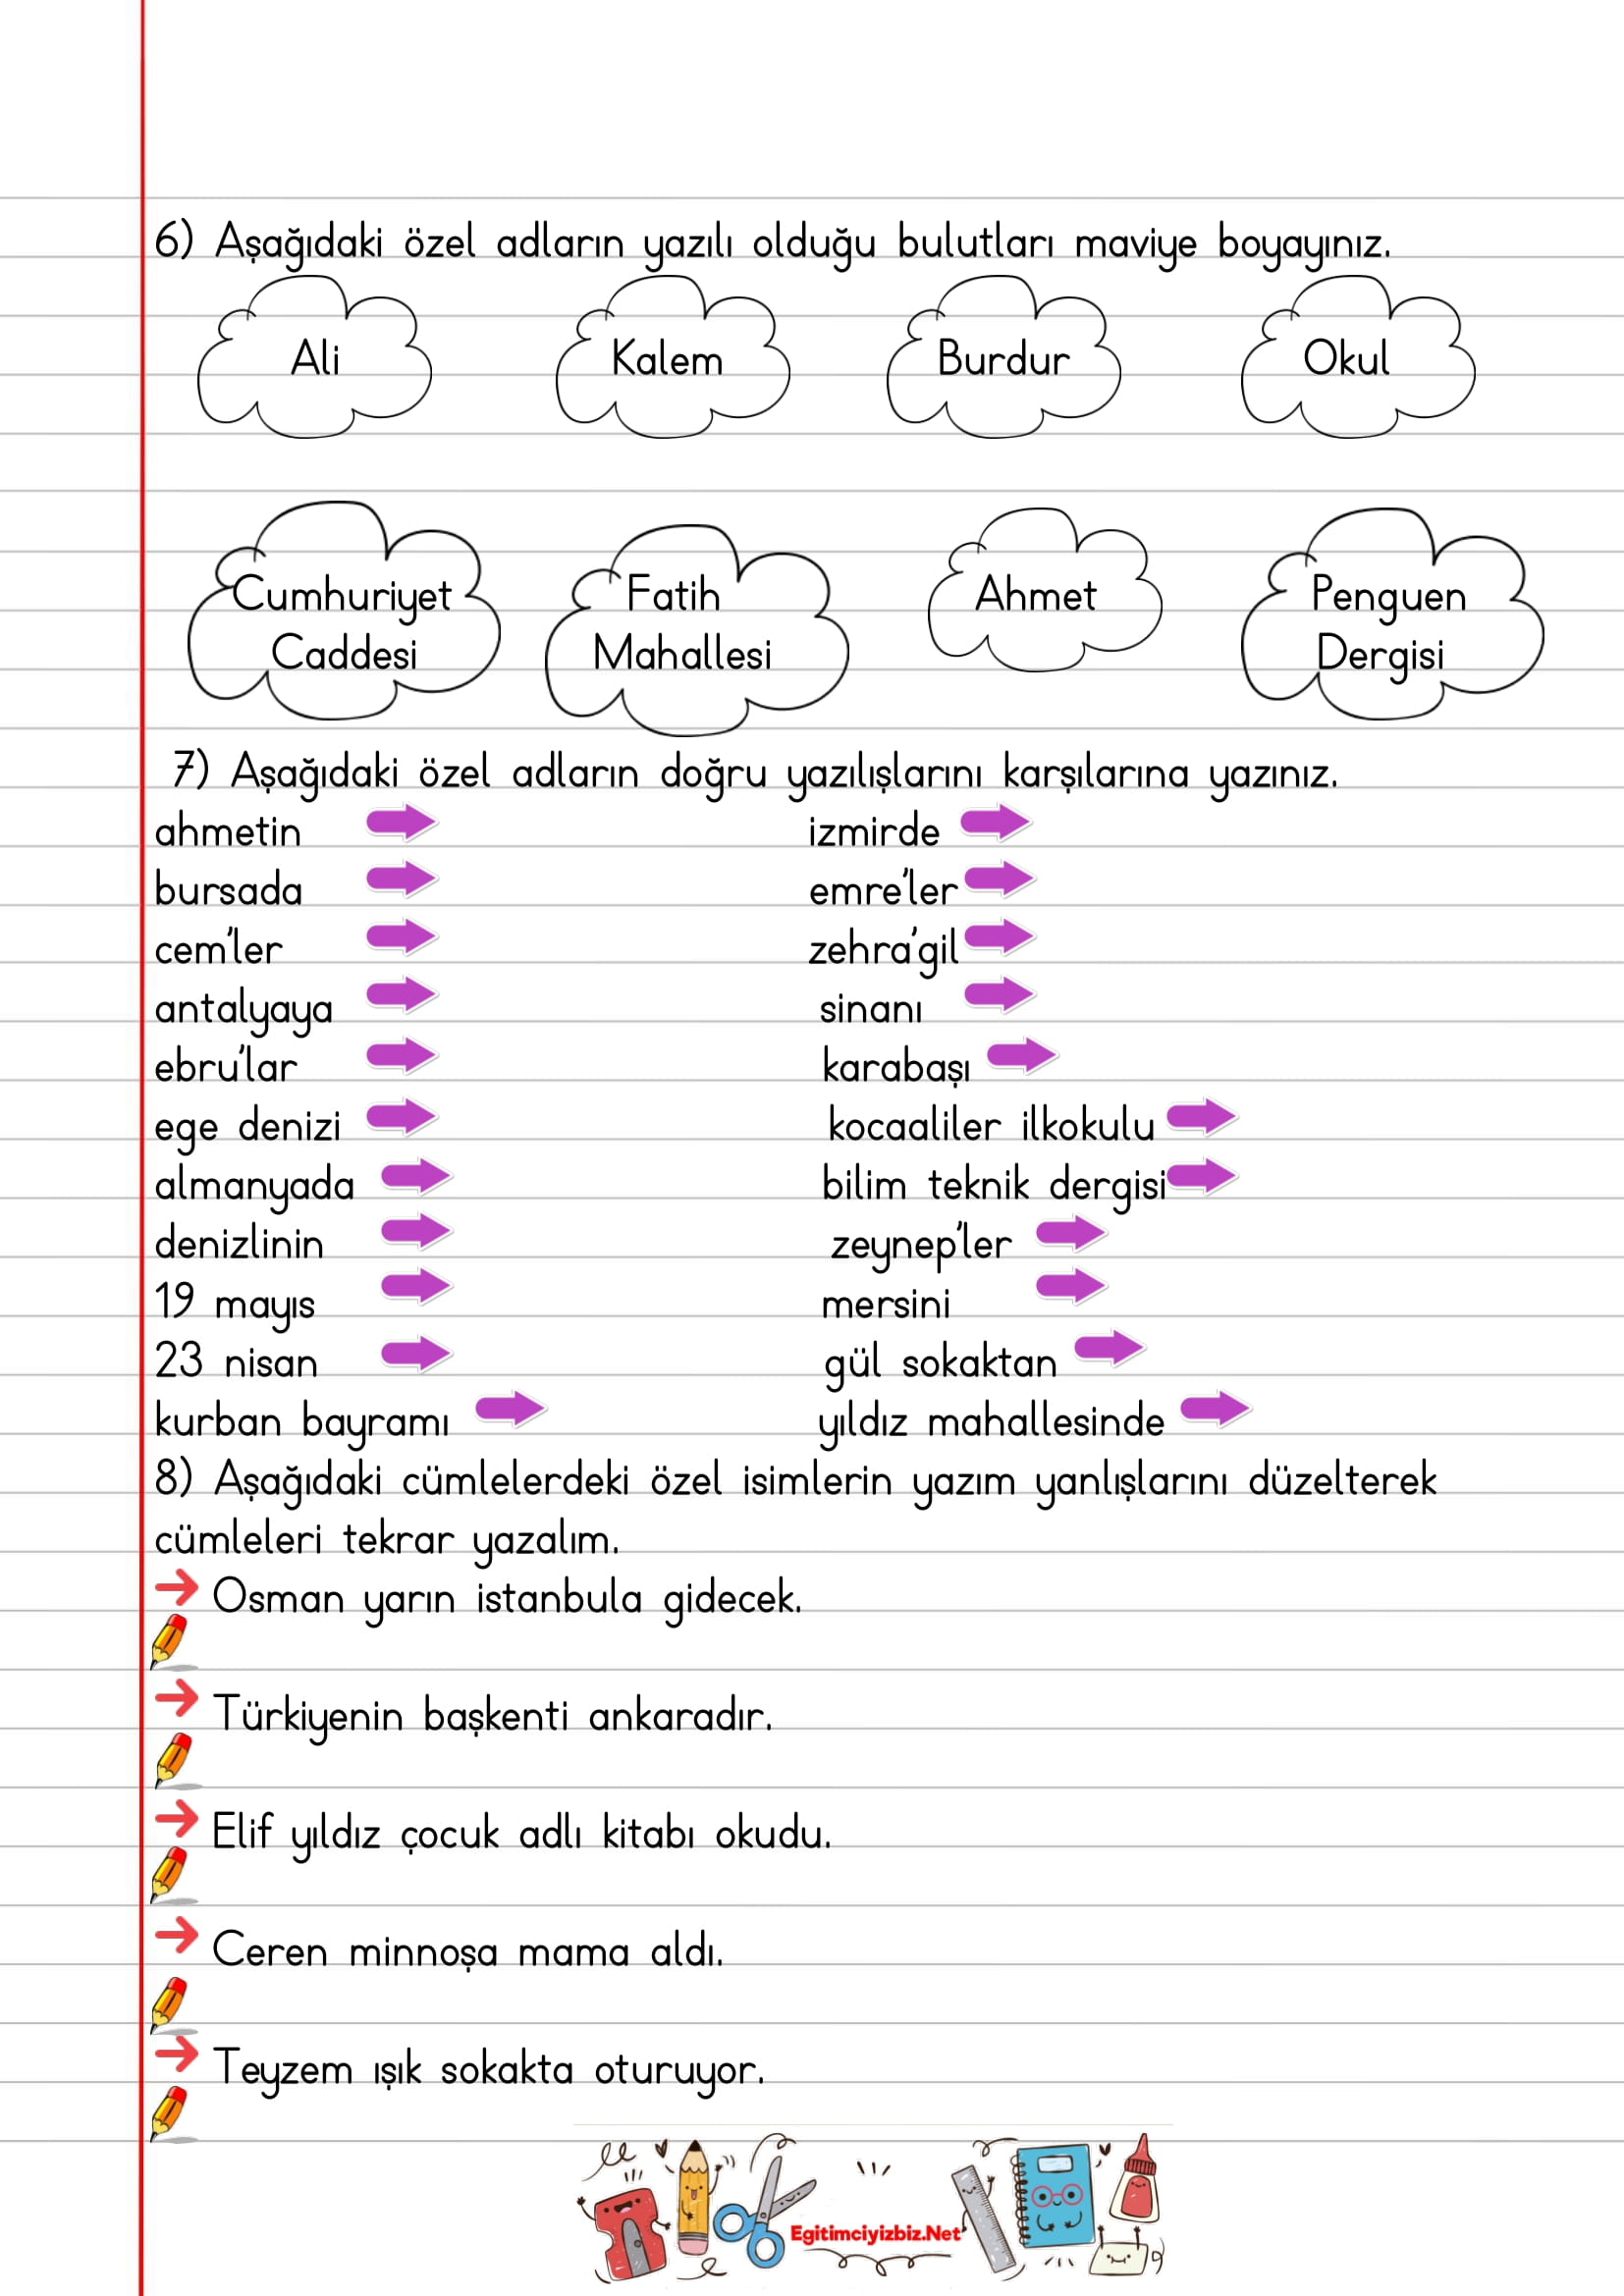 6) Aşağıdaki özel adların yazılı olduğu bulutları maviye boyayınız.
Ali Kalem Burdur Okul
Cumhuriyet Fatih Ahmet Penguen
Caddesi Mahallesi Dergisi
7) Aşağıdaki özel adların doğru yazılışlarını karşılarına yazınız.
ahmetin izmirde
bursada emre'ler
cem'ler zehra'gil
antalyaya sinanı
ebru'lar karabaşı
ege denizi kocaaliler ilkokulu
almanyada bilim teknik dergisi
denizlinin zeynep'ler
19 mayıs mersini
23 nisan gül sokaktan
kurban bayramı yıldız mahallesinde
8) Aşağıdaki cümlelerdeki özel isimlerin yazım yanlışlarını düzelterek
cümleleri tekrar yazalım.
Osman yarın istanbula gidecek.
Türkiyenin başkenti ankaradır.
Elif yıldız çocuk adlı kitabı okudu.
Ceren minnoşa mama aldı.
Teyzem ışık sokakta oturuyor.
Egitimciyizbiz.Net